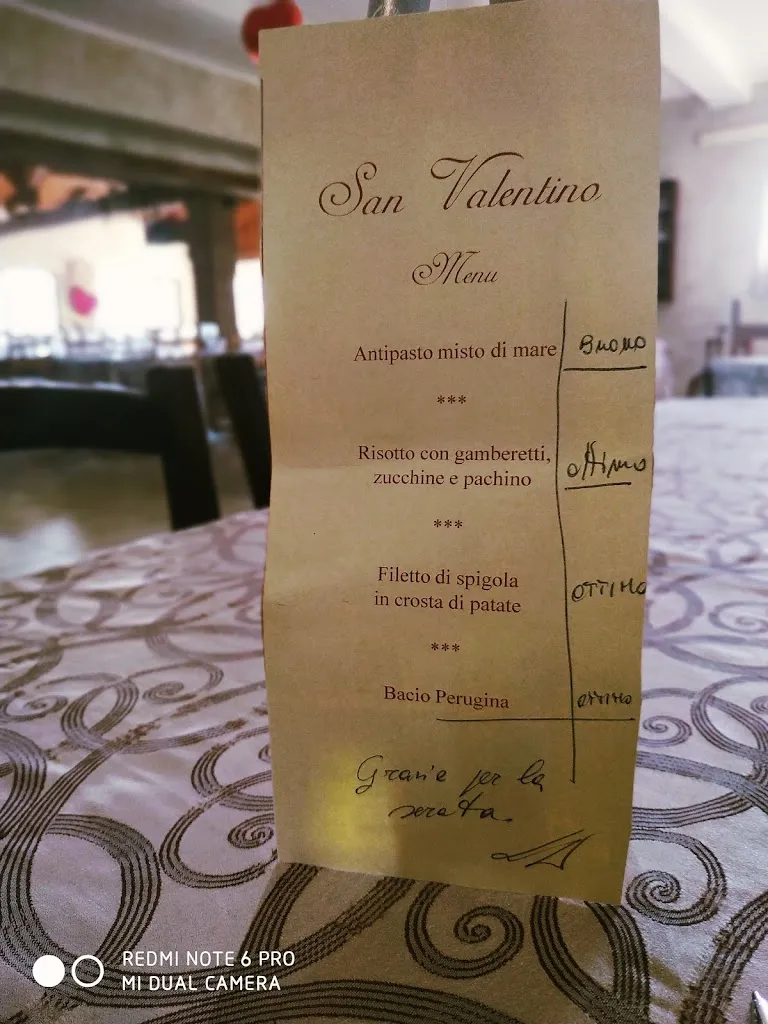 San Valentino
Menu
Antipasto misto di mare Buono
***
Risotto con gamberetti, ottimo
zucchine e pachino
***
Filetto di spigola OTTIMO
in crosta di patate
***
Bacio Perugina OTTIMO
Grazie per la
serata.
REDMI NOTE 6 PRO
MI DUAL CAMERA